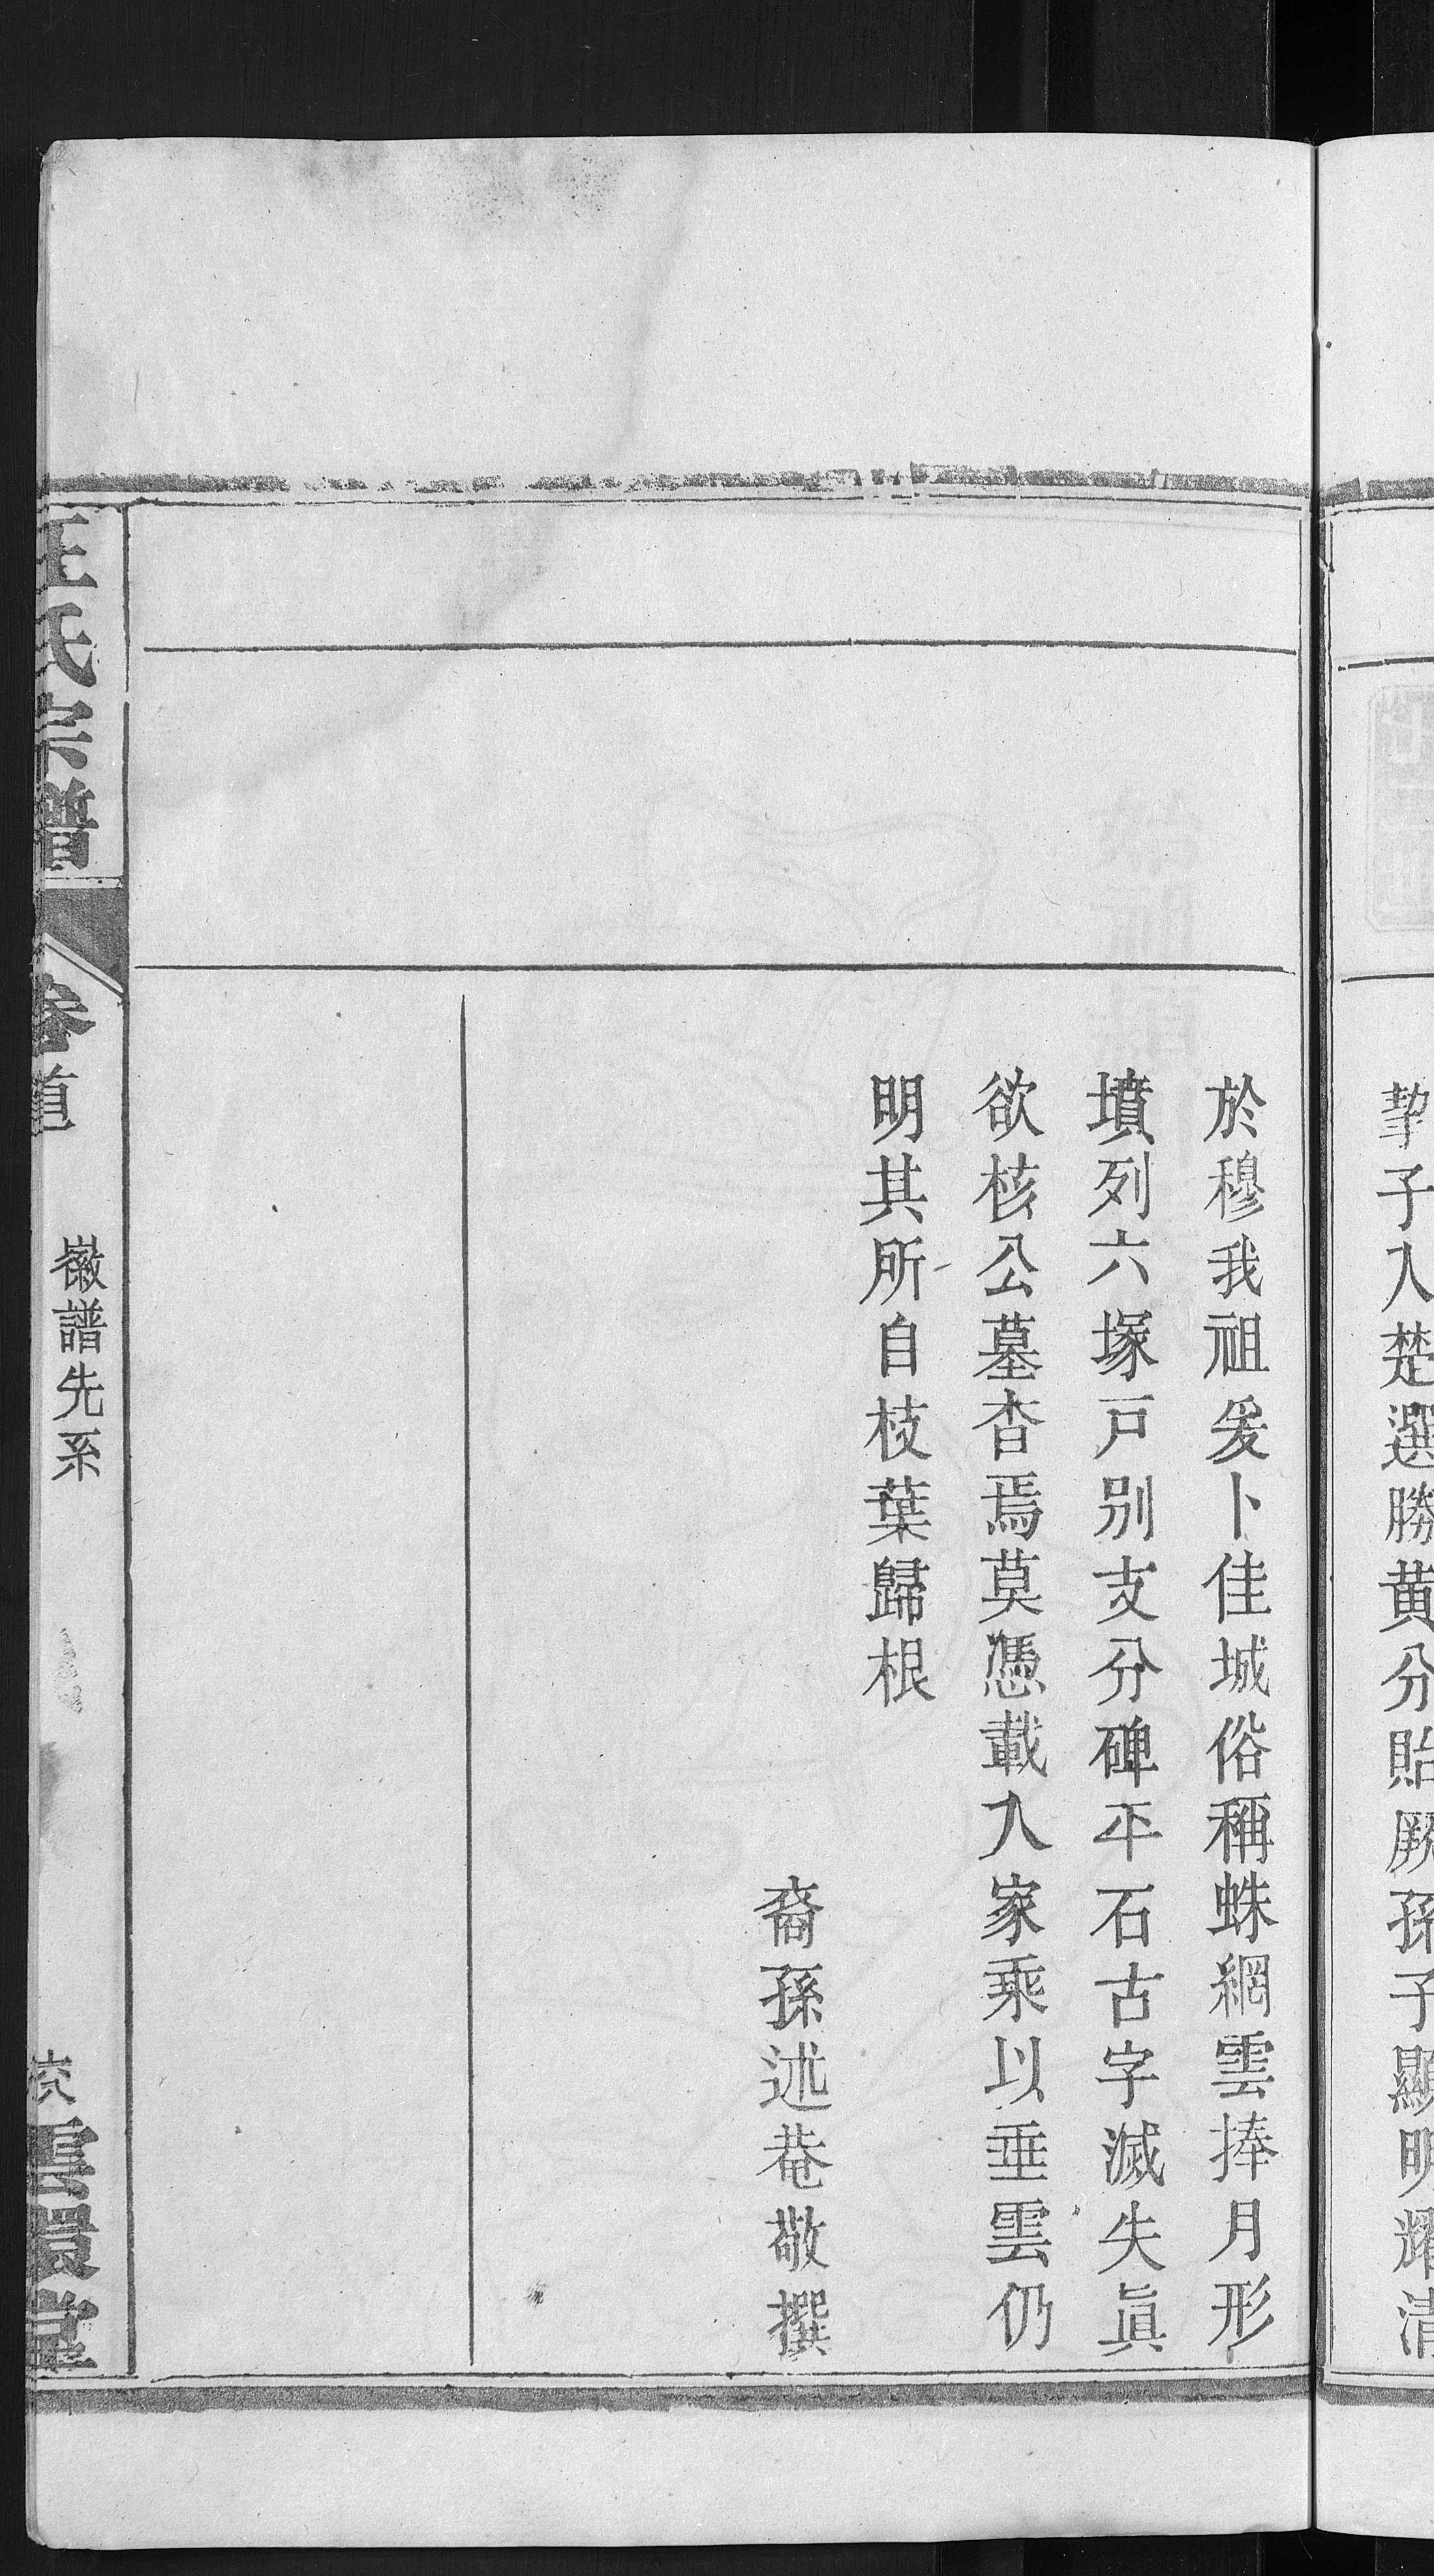 挈子入楚選勝黄分貽厥孫子顯明耀清
於穆我祖爰卜佳城俗稱蛛網雲捧月形
墳列六塚戸别支分碑平石古字滅失眞
欲核公墓杳焉莫憑載入家乘以垂雲仍
明其所自枝葉歸根
裔孫述菴敬撰
汪氏宗譜
卷首
徽譜先系
雲環堂